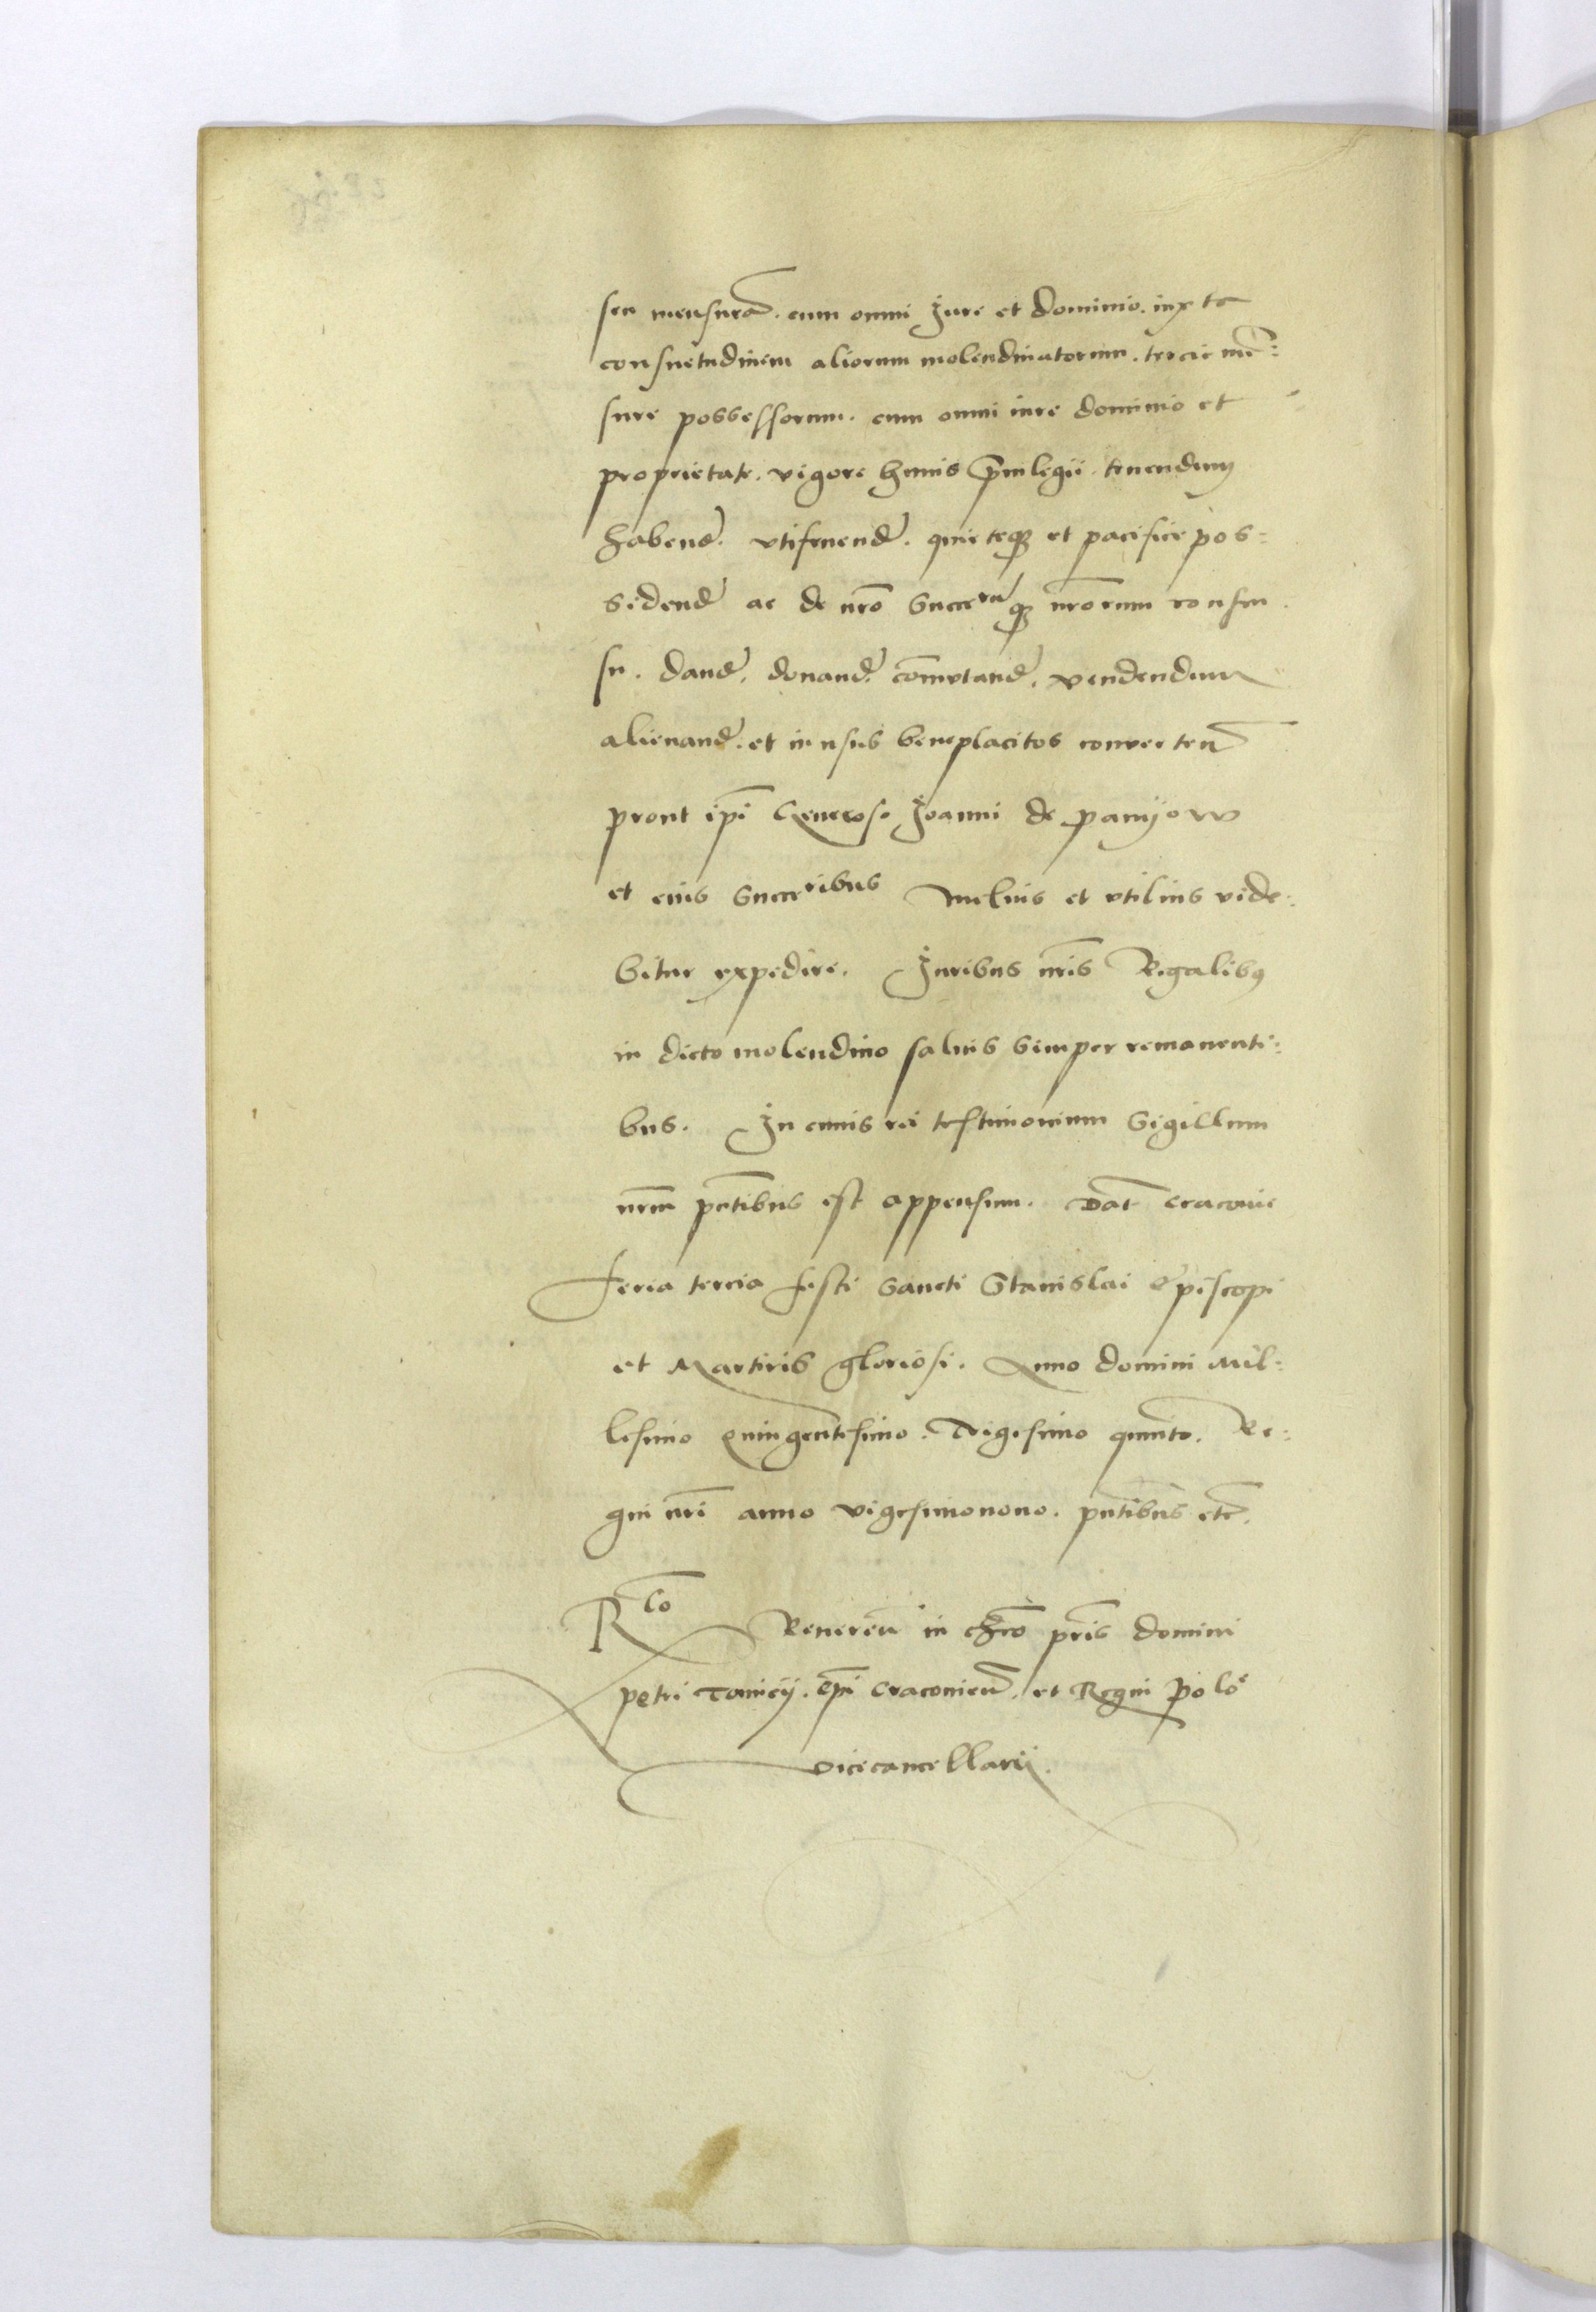 seu mensura͂. cum omni Jure et dominio. iuxta
consuetudinem aliorum molendinatorum. tercie me͂=
sure possessorum. cum omni iure dominio et
proprietate. vigore huius p͂uilegii. tenendum
habend. vtifruend. quieteq̨ et pacifice pos=
sidend ac de nr͂o Succeruq̨ nr͂orum consen
su. dand. donand. com͂vtand. vendendum
alienand. et in usus beneplacitos converten͂
prout ip͂i Generoso Joanni de panyow
et eius Succeribus melius et vtilius vide=
bitur expedire. Juribus nr͂is Regalibꝰ
in dicto molendino saluis semper remanenti=
bus. In cuius rei testimonium Sigillum
nr͂m pn͂tibus est appensum. Dat͂ Cracouie
feria tercia festi Sancti Stanislai Episcopi
et Martiris gloriosi. Anno domini Mil=
lesimo Quingentesimo. Trigesimo quinto. Re=
gni nr͂i anno vigesimonono. pn͂tibus etc͂.
Rlo Reueren͂ in chr͂o pr͂is domini
petri Tomicij. ep͂i Cracouien͂. et Regni polo͂
vicecancellarij.